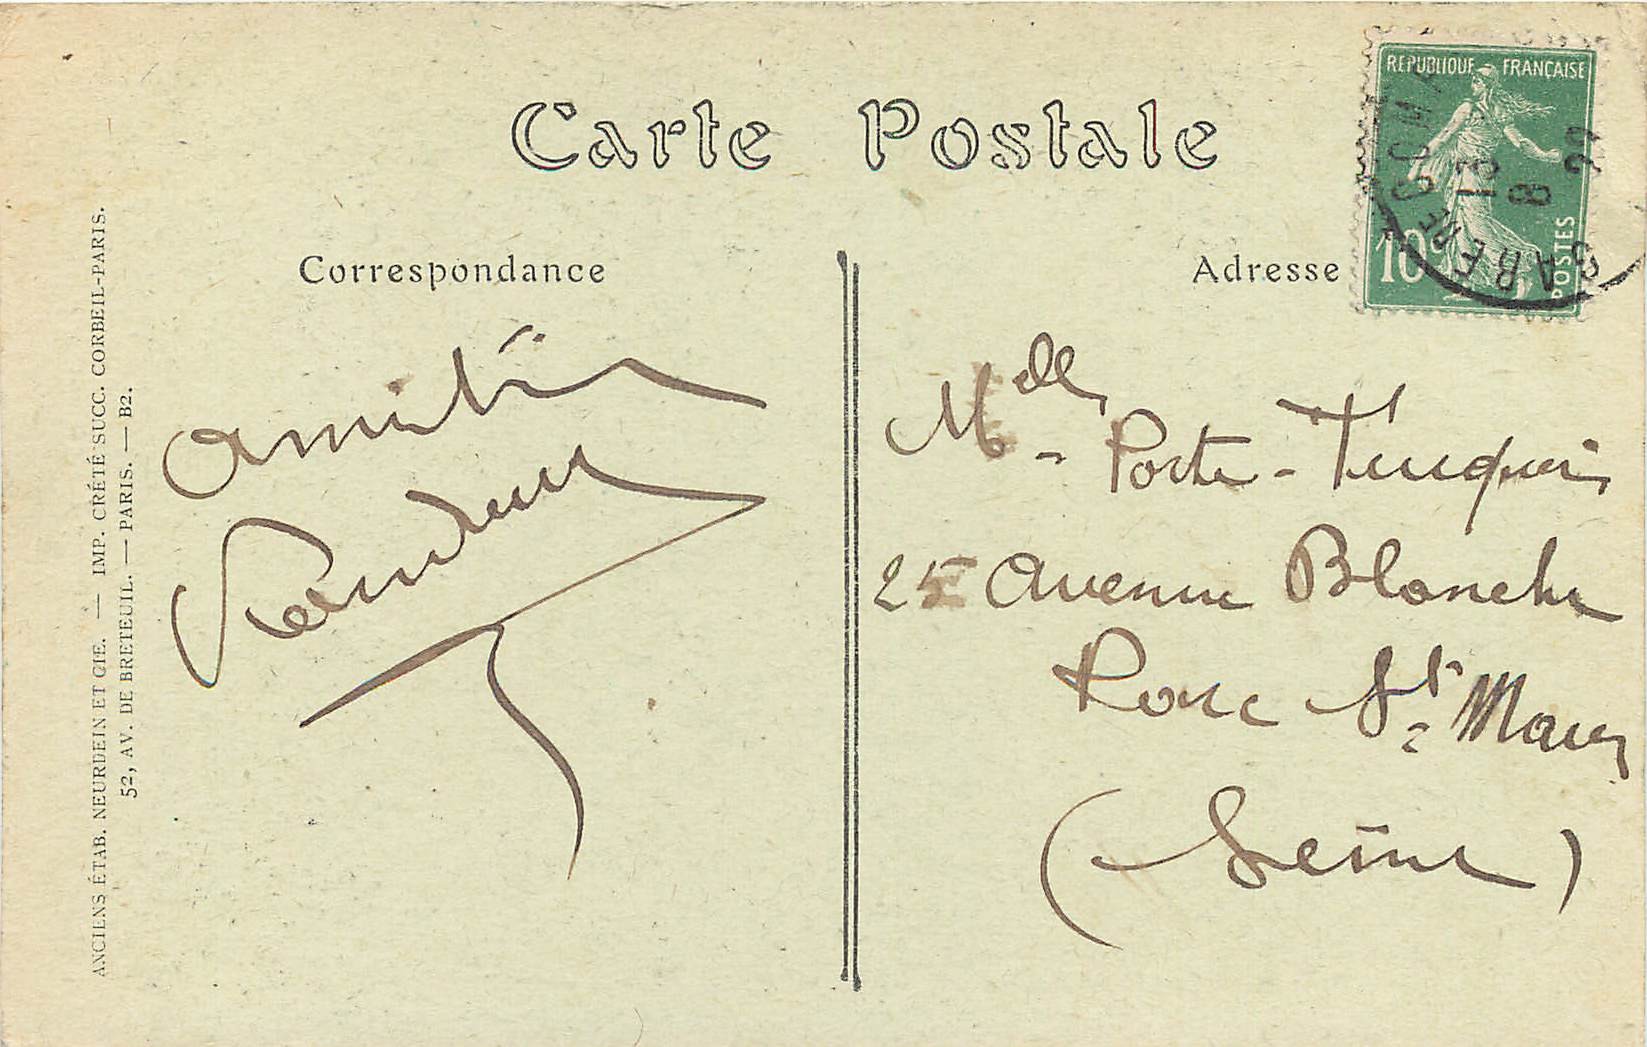 Carte Postale
Correspondance
Adresse
REPUBLIQUE FRANÇAISE
10c
POSTES
12
8
20
ANCIENS ÉTAB. NEURDEIN ET CIE. — IMP. CRÉTÉ SUCC. CORBEIL-PARIS.
52, AV. DE BRETEUIL. — PARIS. — B2.
Mdlle Porte-
25 Avenue Blanche
Parc St Maur
(Seine)